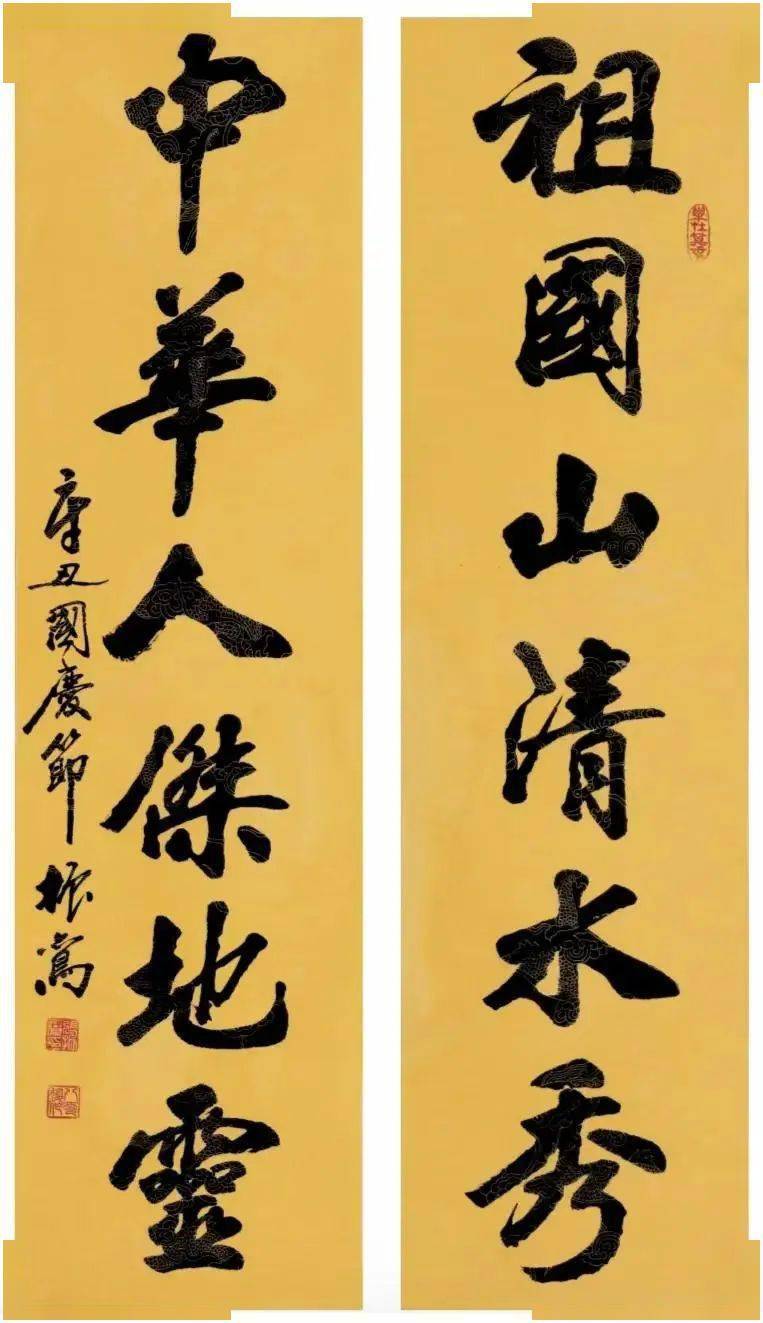 祖國山清水秀
中華人傑地靈
辛丑國慶節振嵩